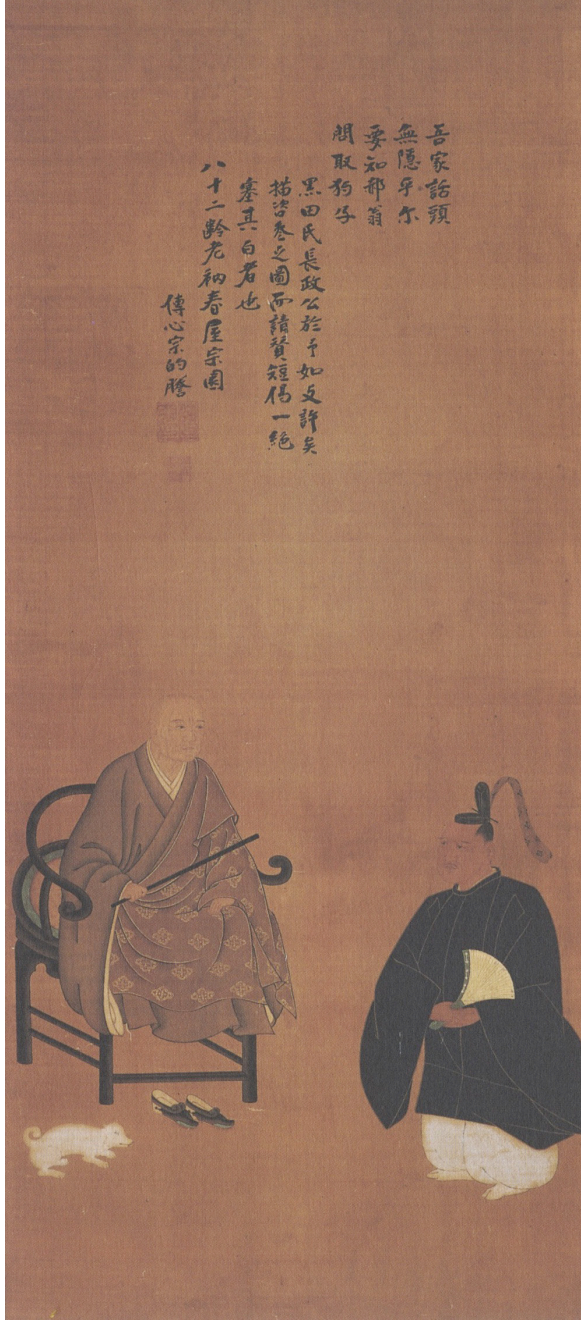 吾家話頭
無隠乎尓
要知那翁
問取狗子
黒田氏長政公於予如支許矣
描咨参之圖而請賛短偈一絶
塞其白者也
八十二齢老衲春屋宗園
傳心宗的謄